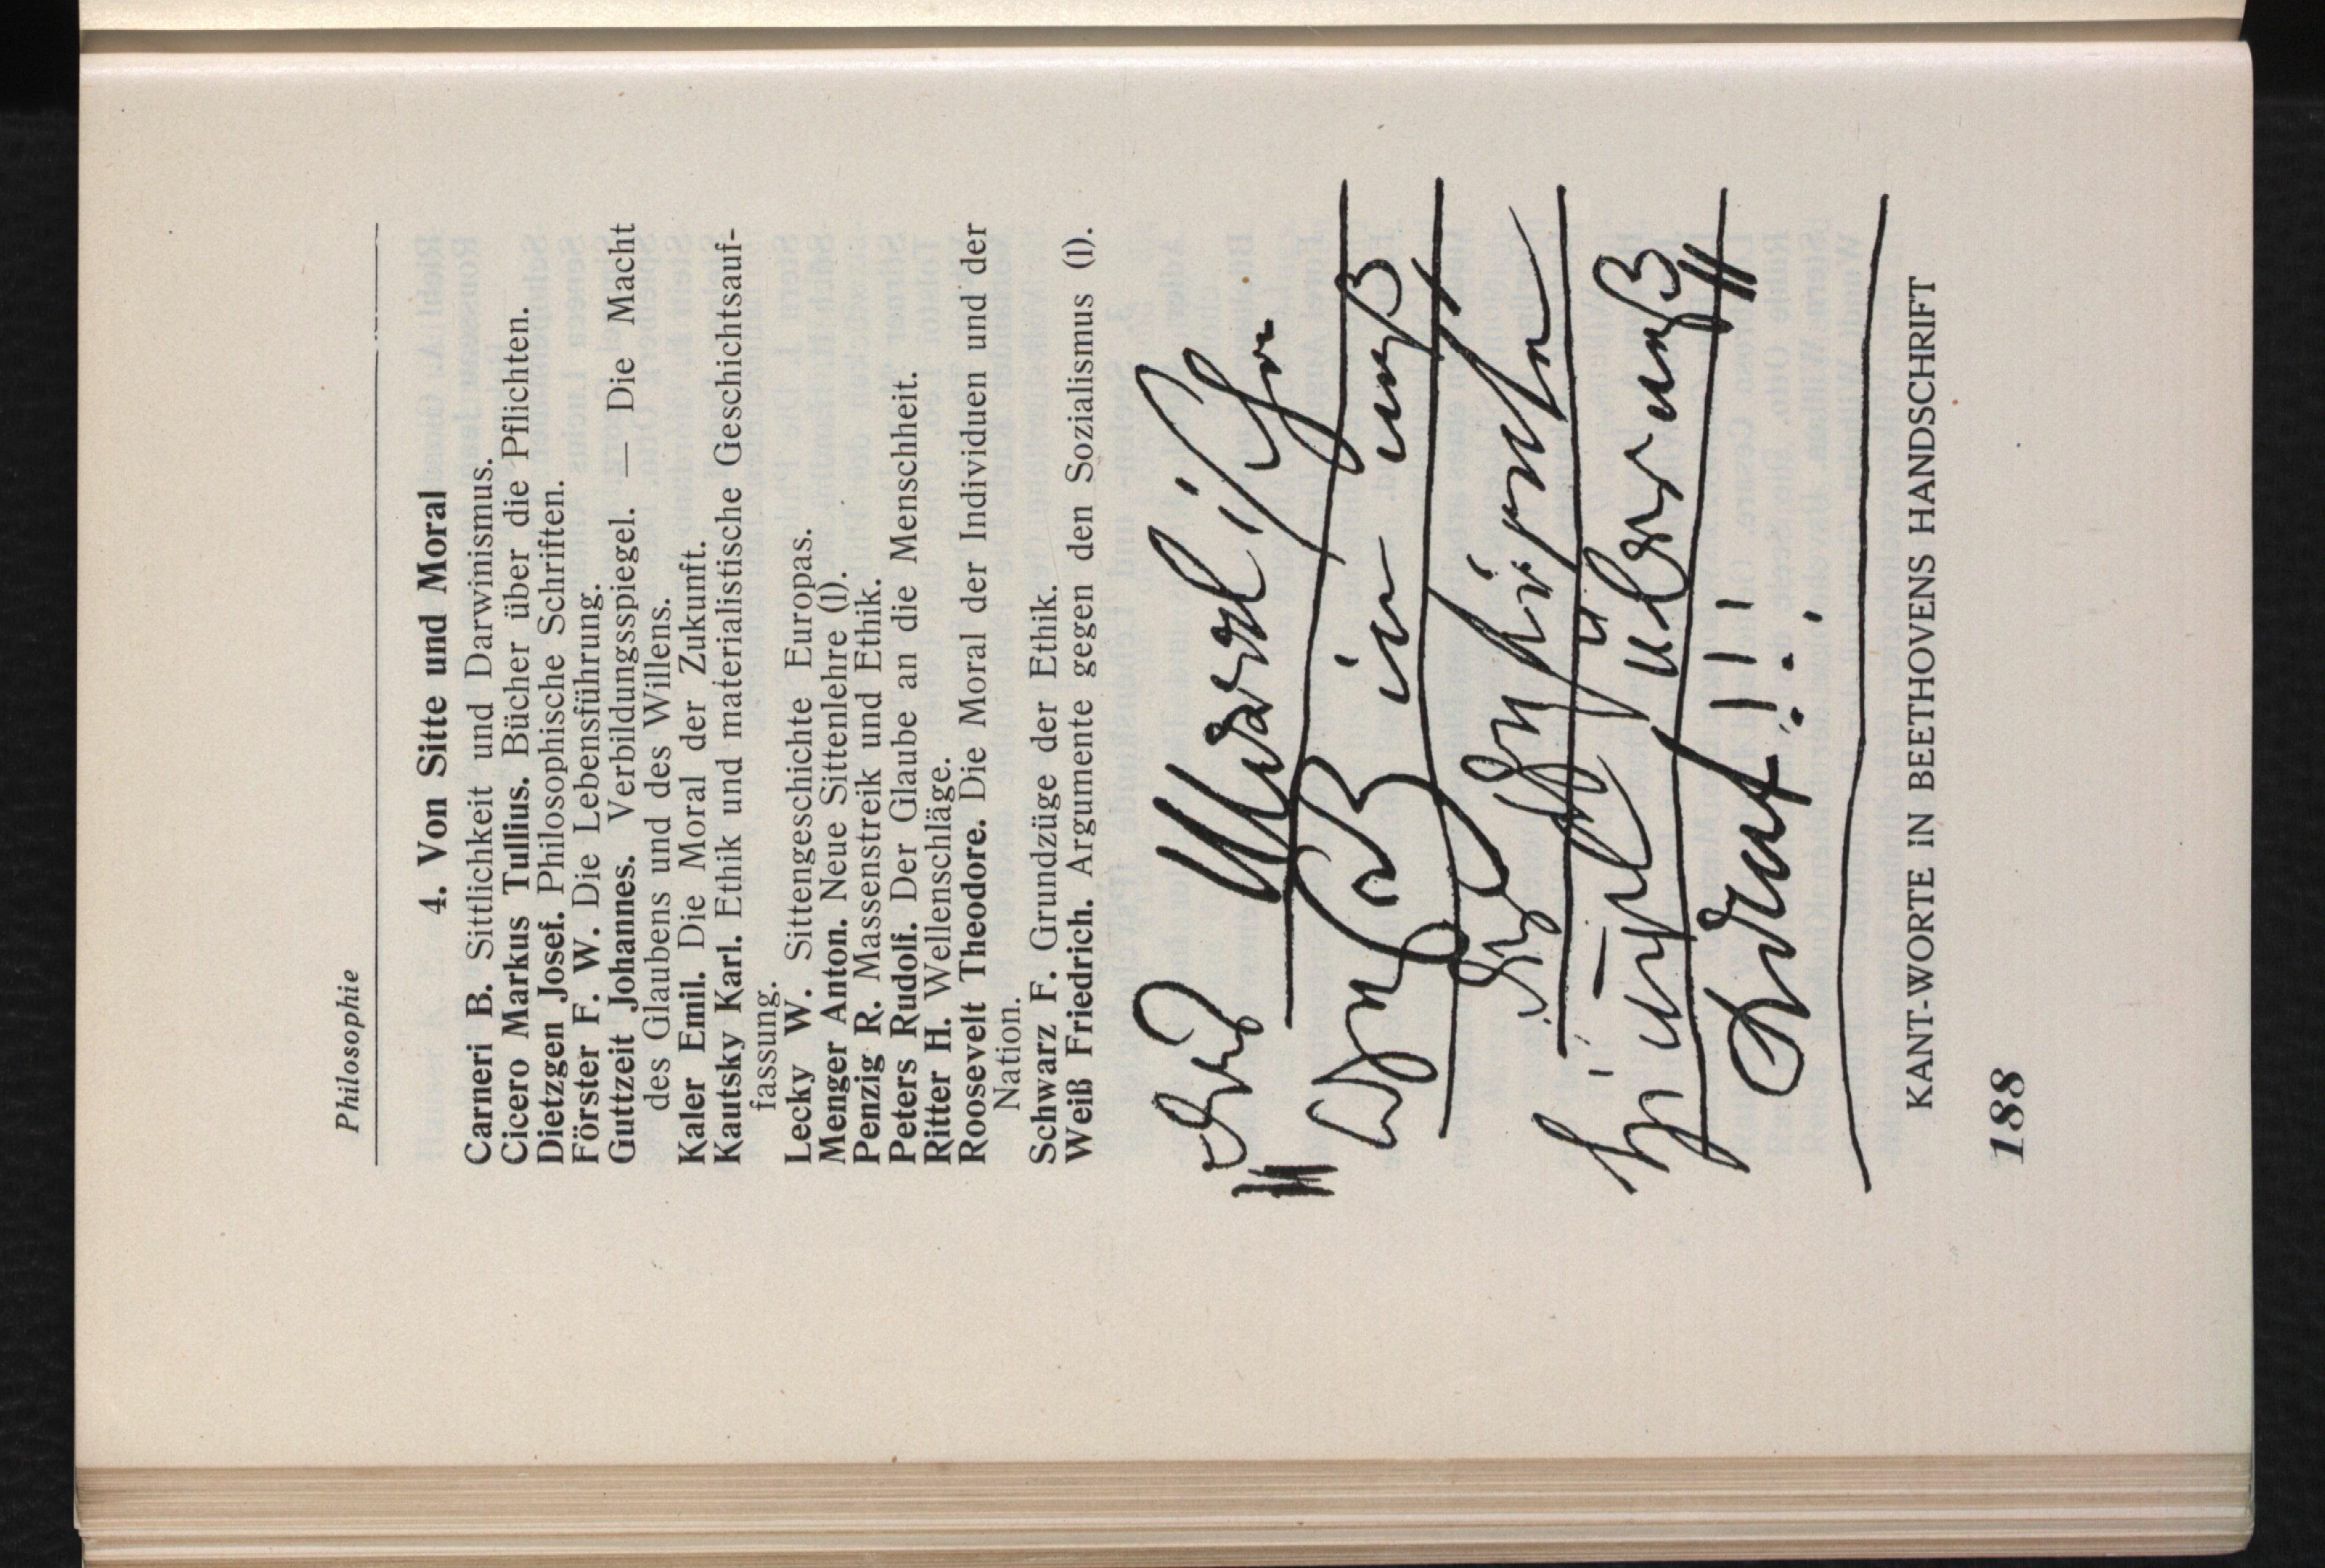 Philosophie
4. Von Sitte und Moral
Carneri B. Sittlichkeit und Darwinismus.
Cicero Markus Tullius. Bücher über die Pflichten.
Dietzgen Josef. Philosophische Schriften.
Förster F. W. Die Lebensführung.
Guttzeit Johannes. Verbildungsspiegel. — Die Macht
des Glaubens und des Willens.
Kaler Emil. Die Moral der Zukunft.
Kautsky Karl. Ethik und materialistische Geschichtsauf-
fassung.
Lecky W. Sittengeschichte Europas.
Menger Anton. Neue Sittenlehre (I).
Penzig R. Massenstreik und Ethik.
Peters Rudolf. Der Glaube an die Menschheit.
Ritter H. Wellenschläge.
Roosevelt Theodore. Die Moral der Individuen und der
Nation.
Schwarz F. Grundzüge der Ethik.
Weiß Friedrich. Argumente gegen den Sozialismus (I).
Das Moralische
Gesez in unß
u. der gestirnte
Himel über unß
Kant!!!
KANT-WORTE IN BEETHOVENS HANDSCHRIFT
188